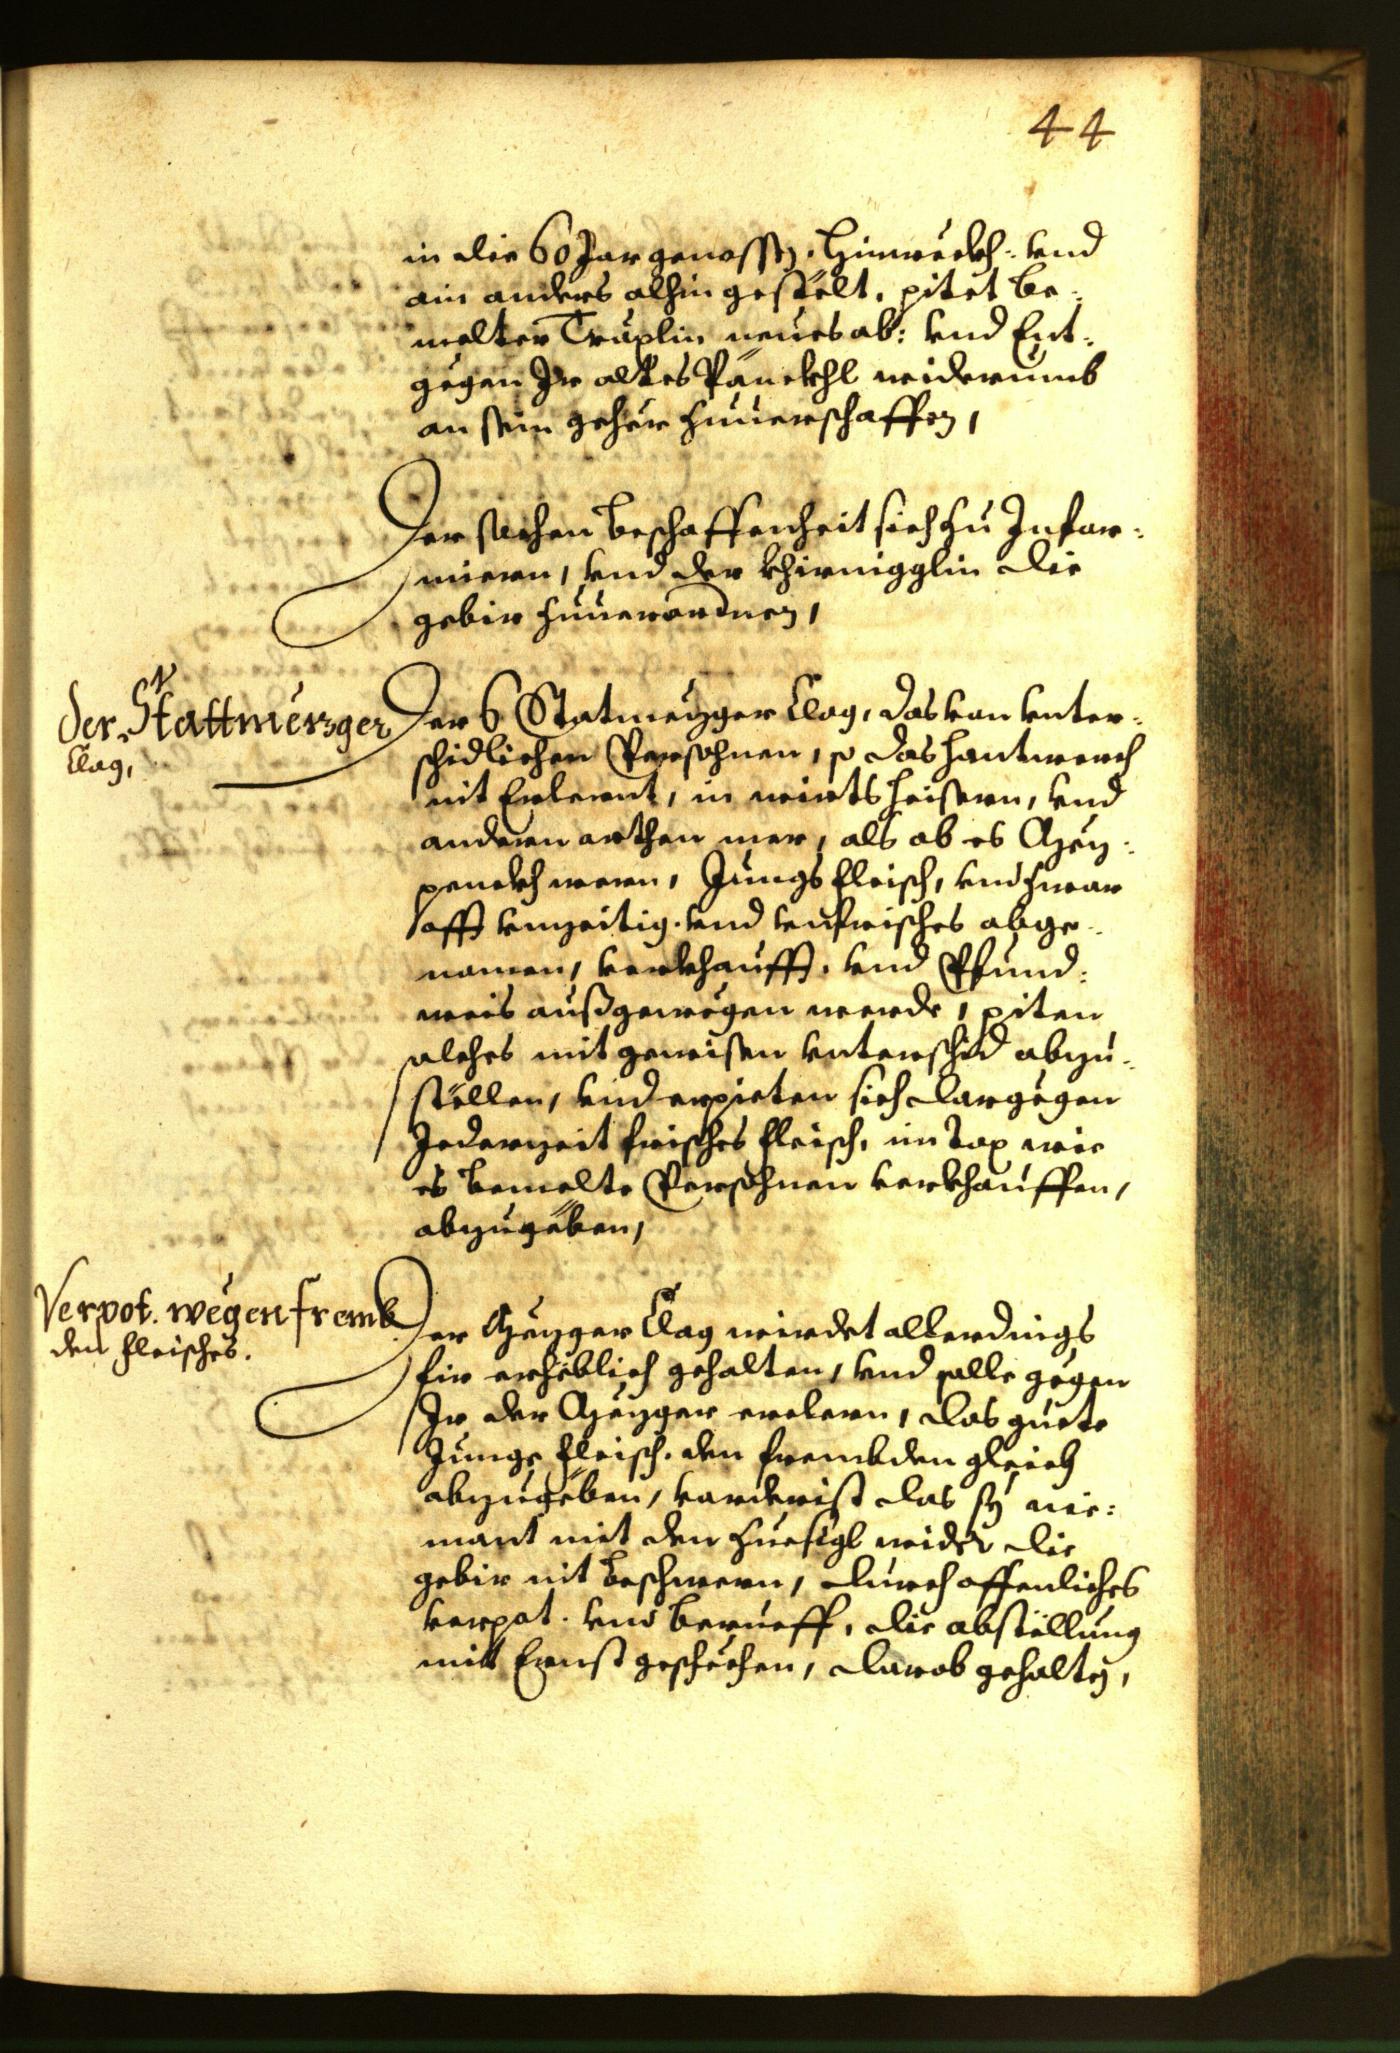 44
in die 60 Jar genossen, hinweckh: vnd
ain anders alhin gestelt, pitet be:
melter Traplin neues ab: vnd Ent:
gegen Ir altes Pänckhl widerumb
an sein gehör zuuerschaffen,
Der sachen beschaffenheit sich zu Infor:
miern, vnd der khirnigglin die
gebir zuuerordnen,
der 6 Stattmezger
Clag,
Der 6 Statmezger Clag, das von vnter:
schidlichen Persohnen, so das hantwerch
nit Erlernt, in wirtsheisern, vnd
andern orthen mer, als ob es Mez:
penckh wern, Jungs fleisch, vnd zwar
offt vnzeitig. vnd vnfrisches abge:
nomen, verkhaufft, vnd Pfund:
weis außgewogen werde, piten
solches mit gewisen vnterschid abzu:
stellen, vnd erpieten sich dargegen
Jederzeit frisches fleisch, im Tax wie
es bemelte Persohnen verkhauffen,
abzugeben,
Verpot. wegen fremb
den fleisches.
Der Mezger Clag wirdet allerdings
fir erheblich gehalten, vnd solle gegen
Ir der Mezger erclern, das guete
Junge fleisch. den frembden gleich
abzugeben, vorderist das sy nie:
mant mit den zuesigl wider die
gebir nit beschwern, durch offenliches
verpot. vnd berueff, die abstellung
mit Ernst geschechen, darob gehalten,